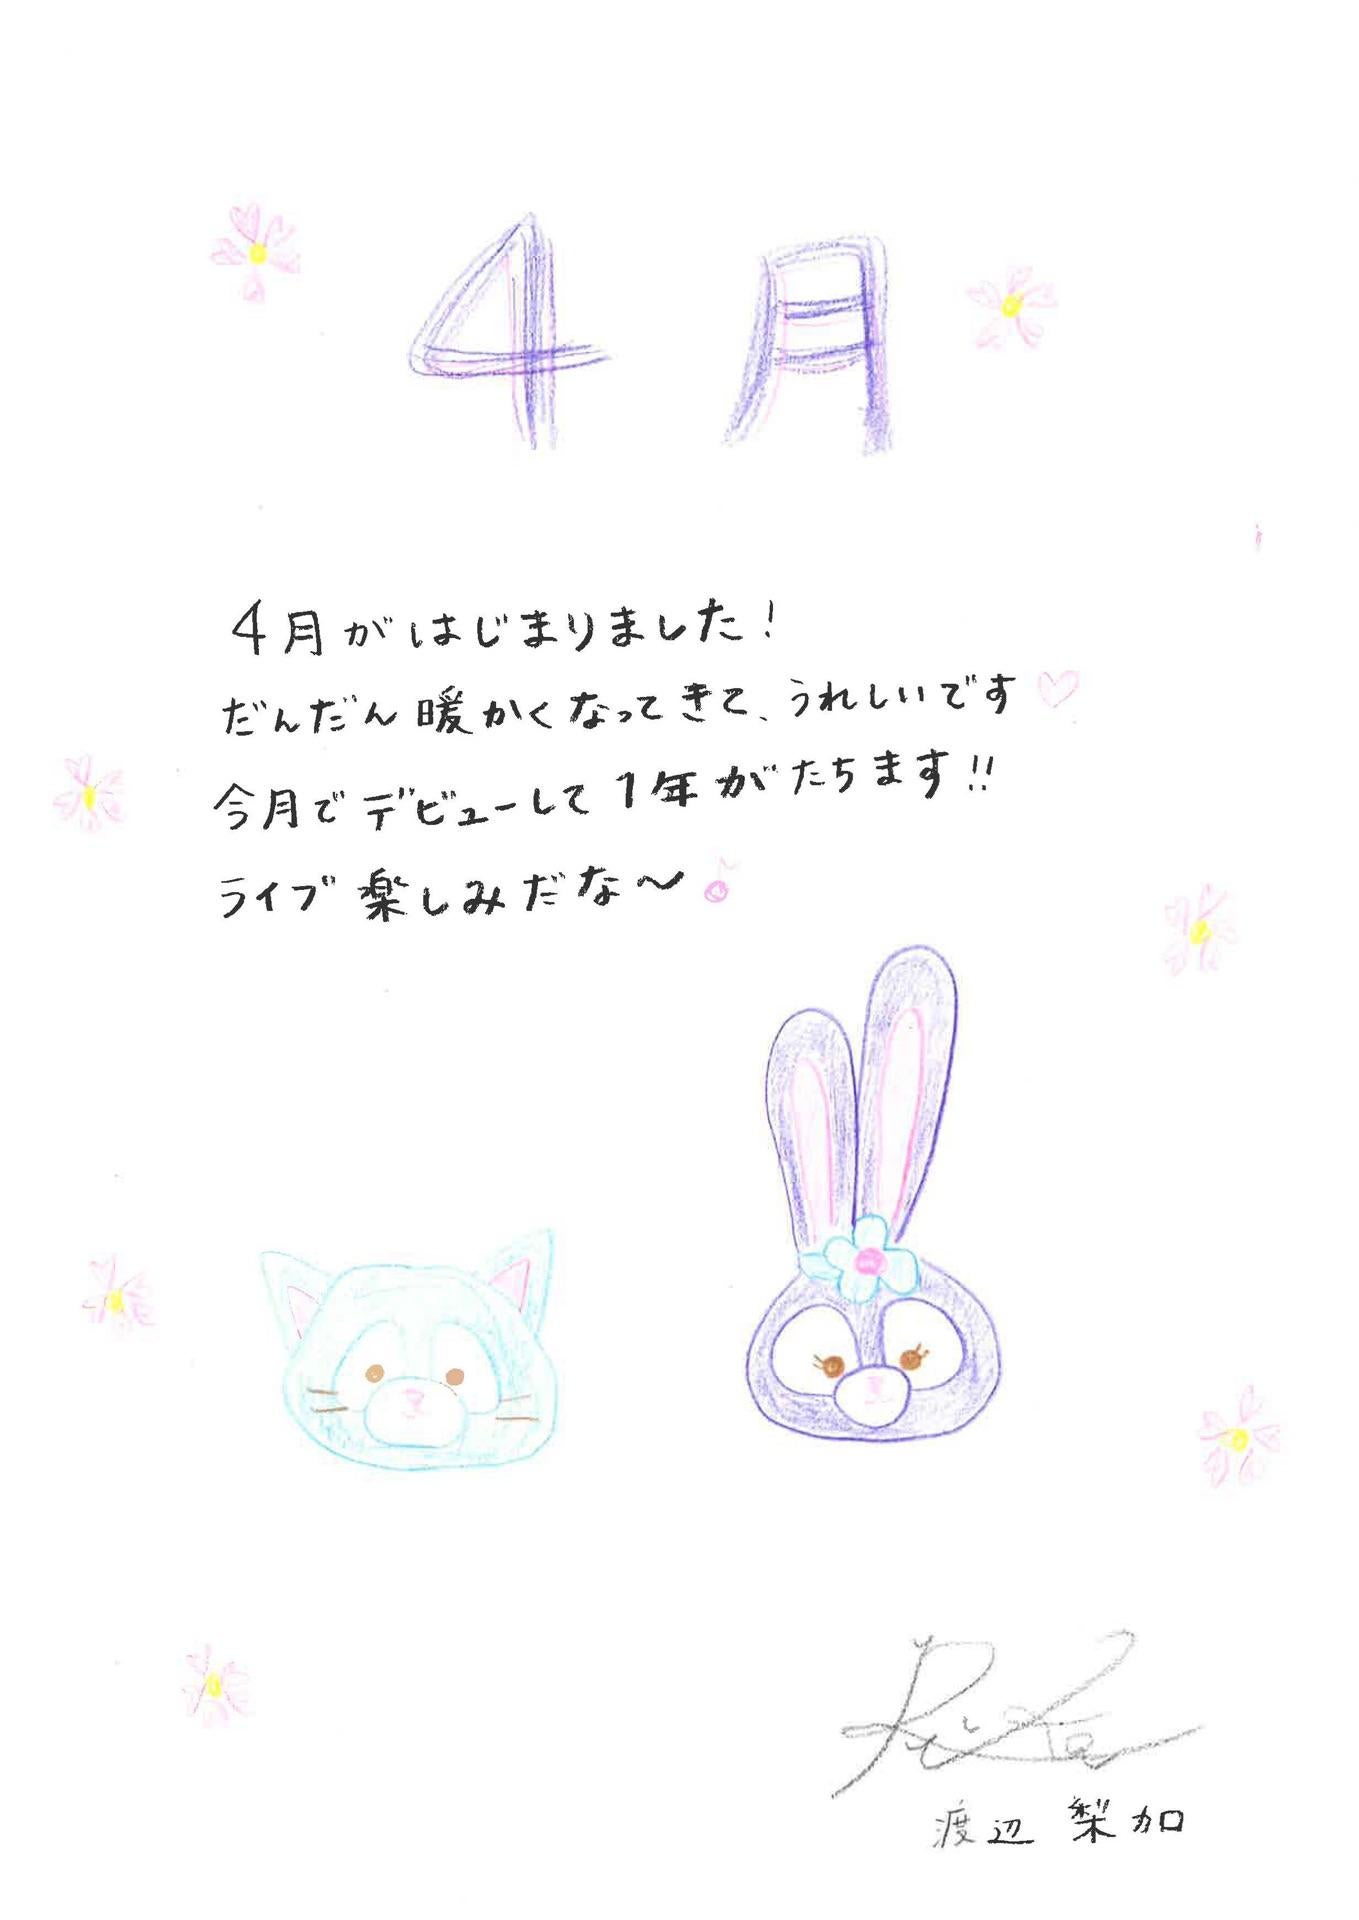 4月
4月がはじまりました!
だんだん暖かくなってきて、うれしいです♡
今月でデビューして1年がたちます!!
ライブ楽しみだな〜♪
Rika
渡辺 梨加